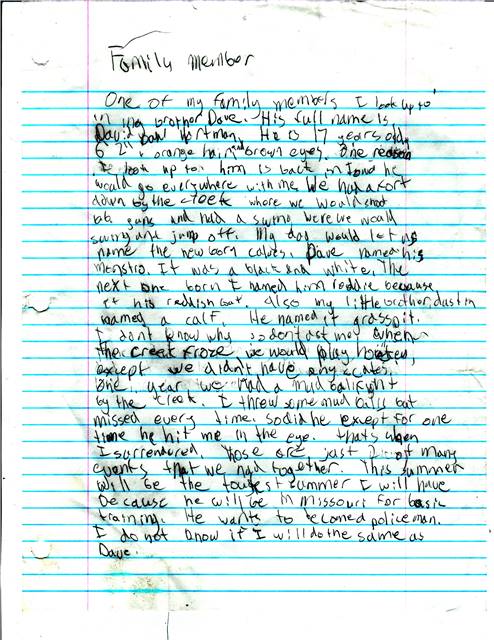 Family member
One of my family members I look up to
is my brother Dave. His full name is
David Hortman. He is 17 years old,
6'2", orange hair and brown eyes. One reason
I look up to him is back in Iowa he
would go everywhere with me. We had a fort
down by the creek where we would shoot
bb guns and had a swing were we would
swing and jump off. My dad would let us
name the new born calves. Dave named his
monstro. It was a black and white. The
next one born I named him reddie because
it his reddish coat. Also my little brother, dustin
named a calf. He named it grasspit.
I dont know why so dont ask me. When
the creek froze we would play hockey,
except we didn't have any scates.
One year we had a mud ball fight
by the creek. I threw some mud balls but
missed every time. So did he except for one
time he hit me in the eye. thats when
I surrendured. those are just 2 of many
events that we had together. This summer
will be the toughest summer I will have
because he will be in Missouri for basic
training. He wants to becomed policeman.
I do not know if I will do the same as
Dave.